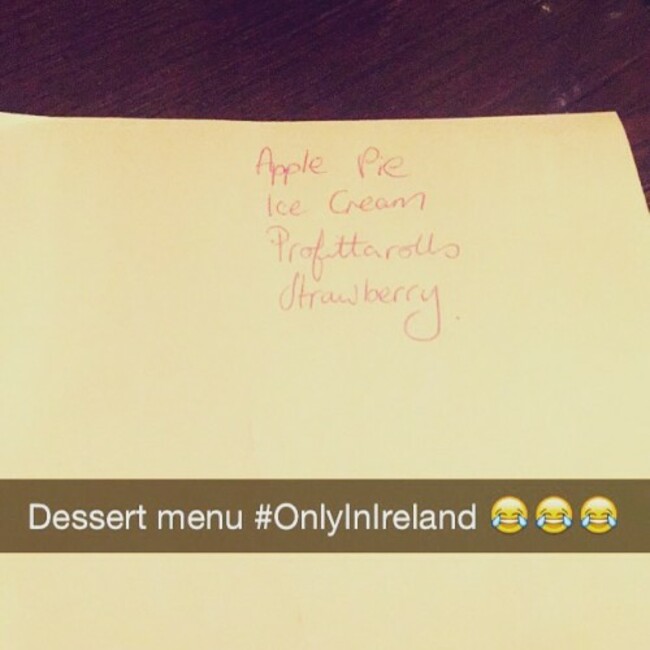 Apple Pie
Ice Cream
Profittarolls
Strawberry.
Dessert menu #OnlyInIreland 😂😂😂